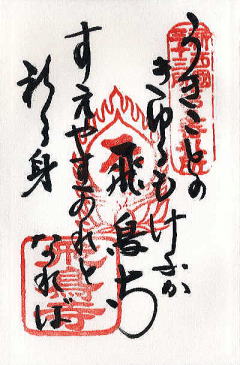 うきことの
きゆるもけふか
飛鳥寺
すえやすかれと
祈る身
なれば
飛鳥寺